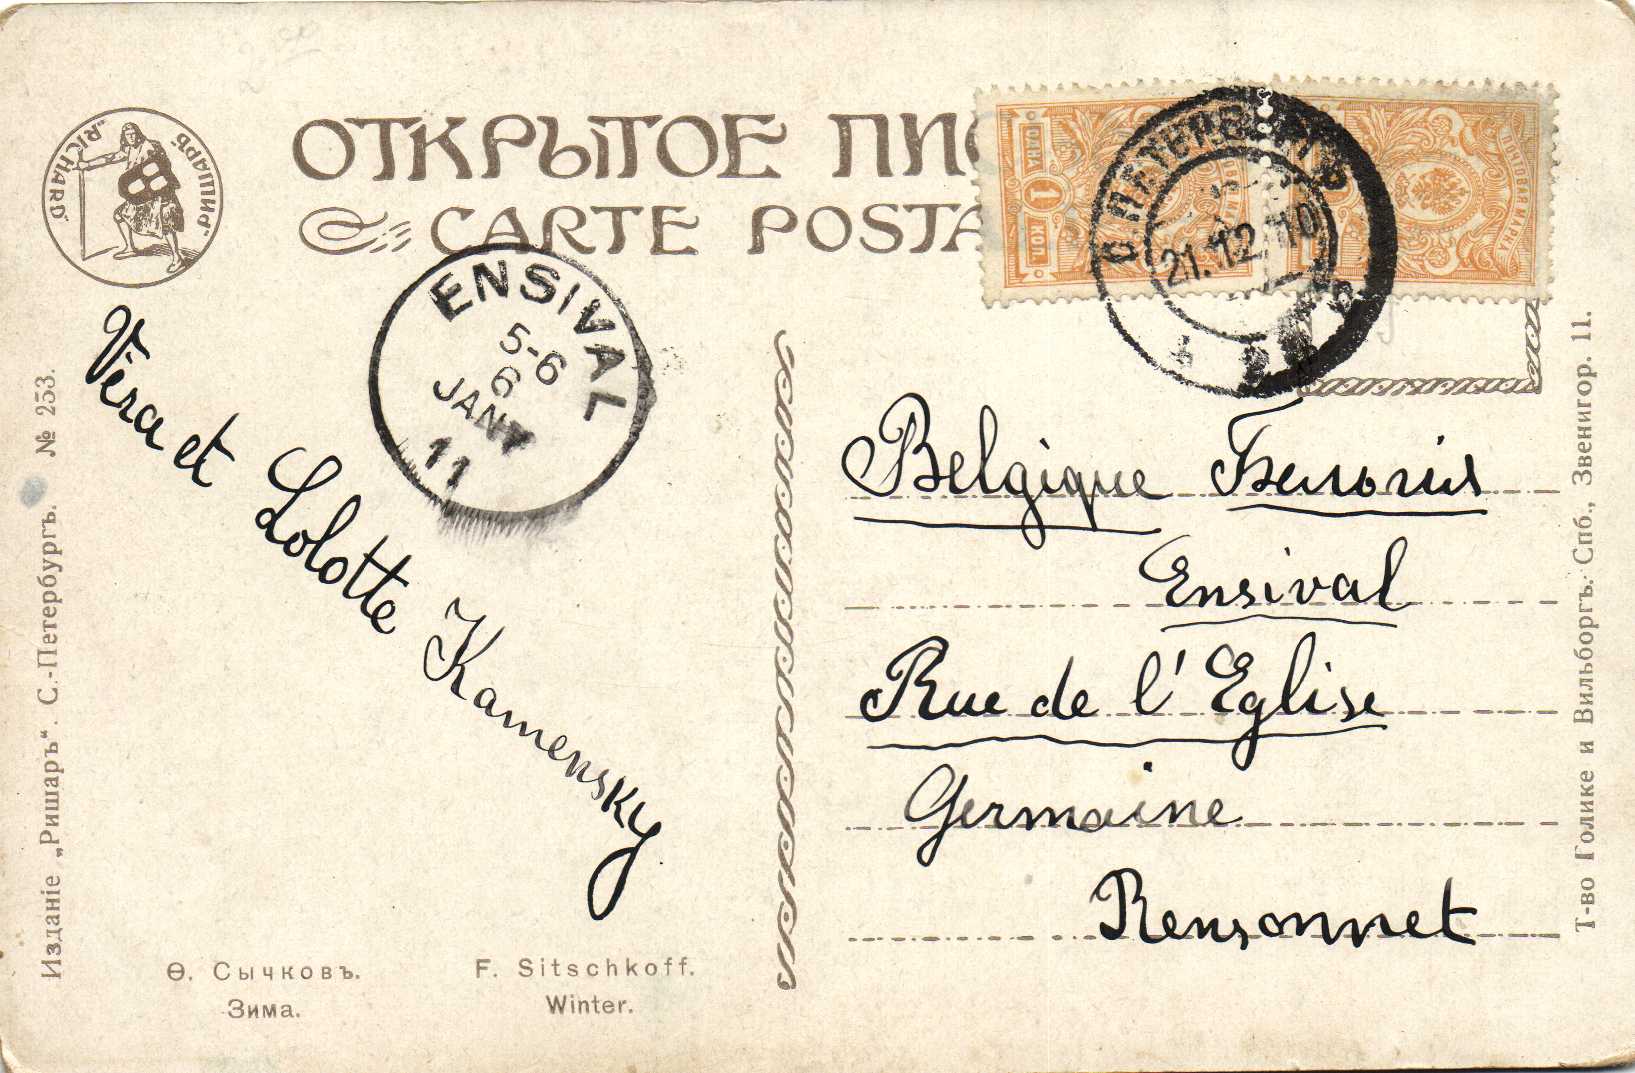 ОТКРЫТОЕ ПИС
CARTE POSTA
„RICHARD“
„РИШАРЪ“
ОДНА
1
КОП.
ПОЧТОВАЯ МАРКА
С.ПЕТЕРБУРГЪ
21.12.10
ENSIVAL
5-6
6
JANV
11
Vera et Lolotte Kamensky
Belgique Бельгія
Ensival
Rue de l'Eglise
Germaine
Rensonnet
Изданіе „Ришаръ“. С.-Петербургъ. № 253.
Т-во Голике и Вильборгъ. Спб., Звенигор. 11.
Ѳ. Сычковъ.
Зима.
F. Sitschkoff.
Winter.